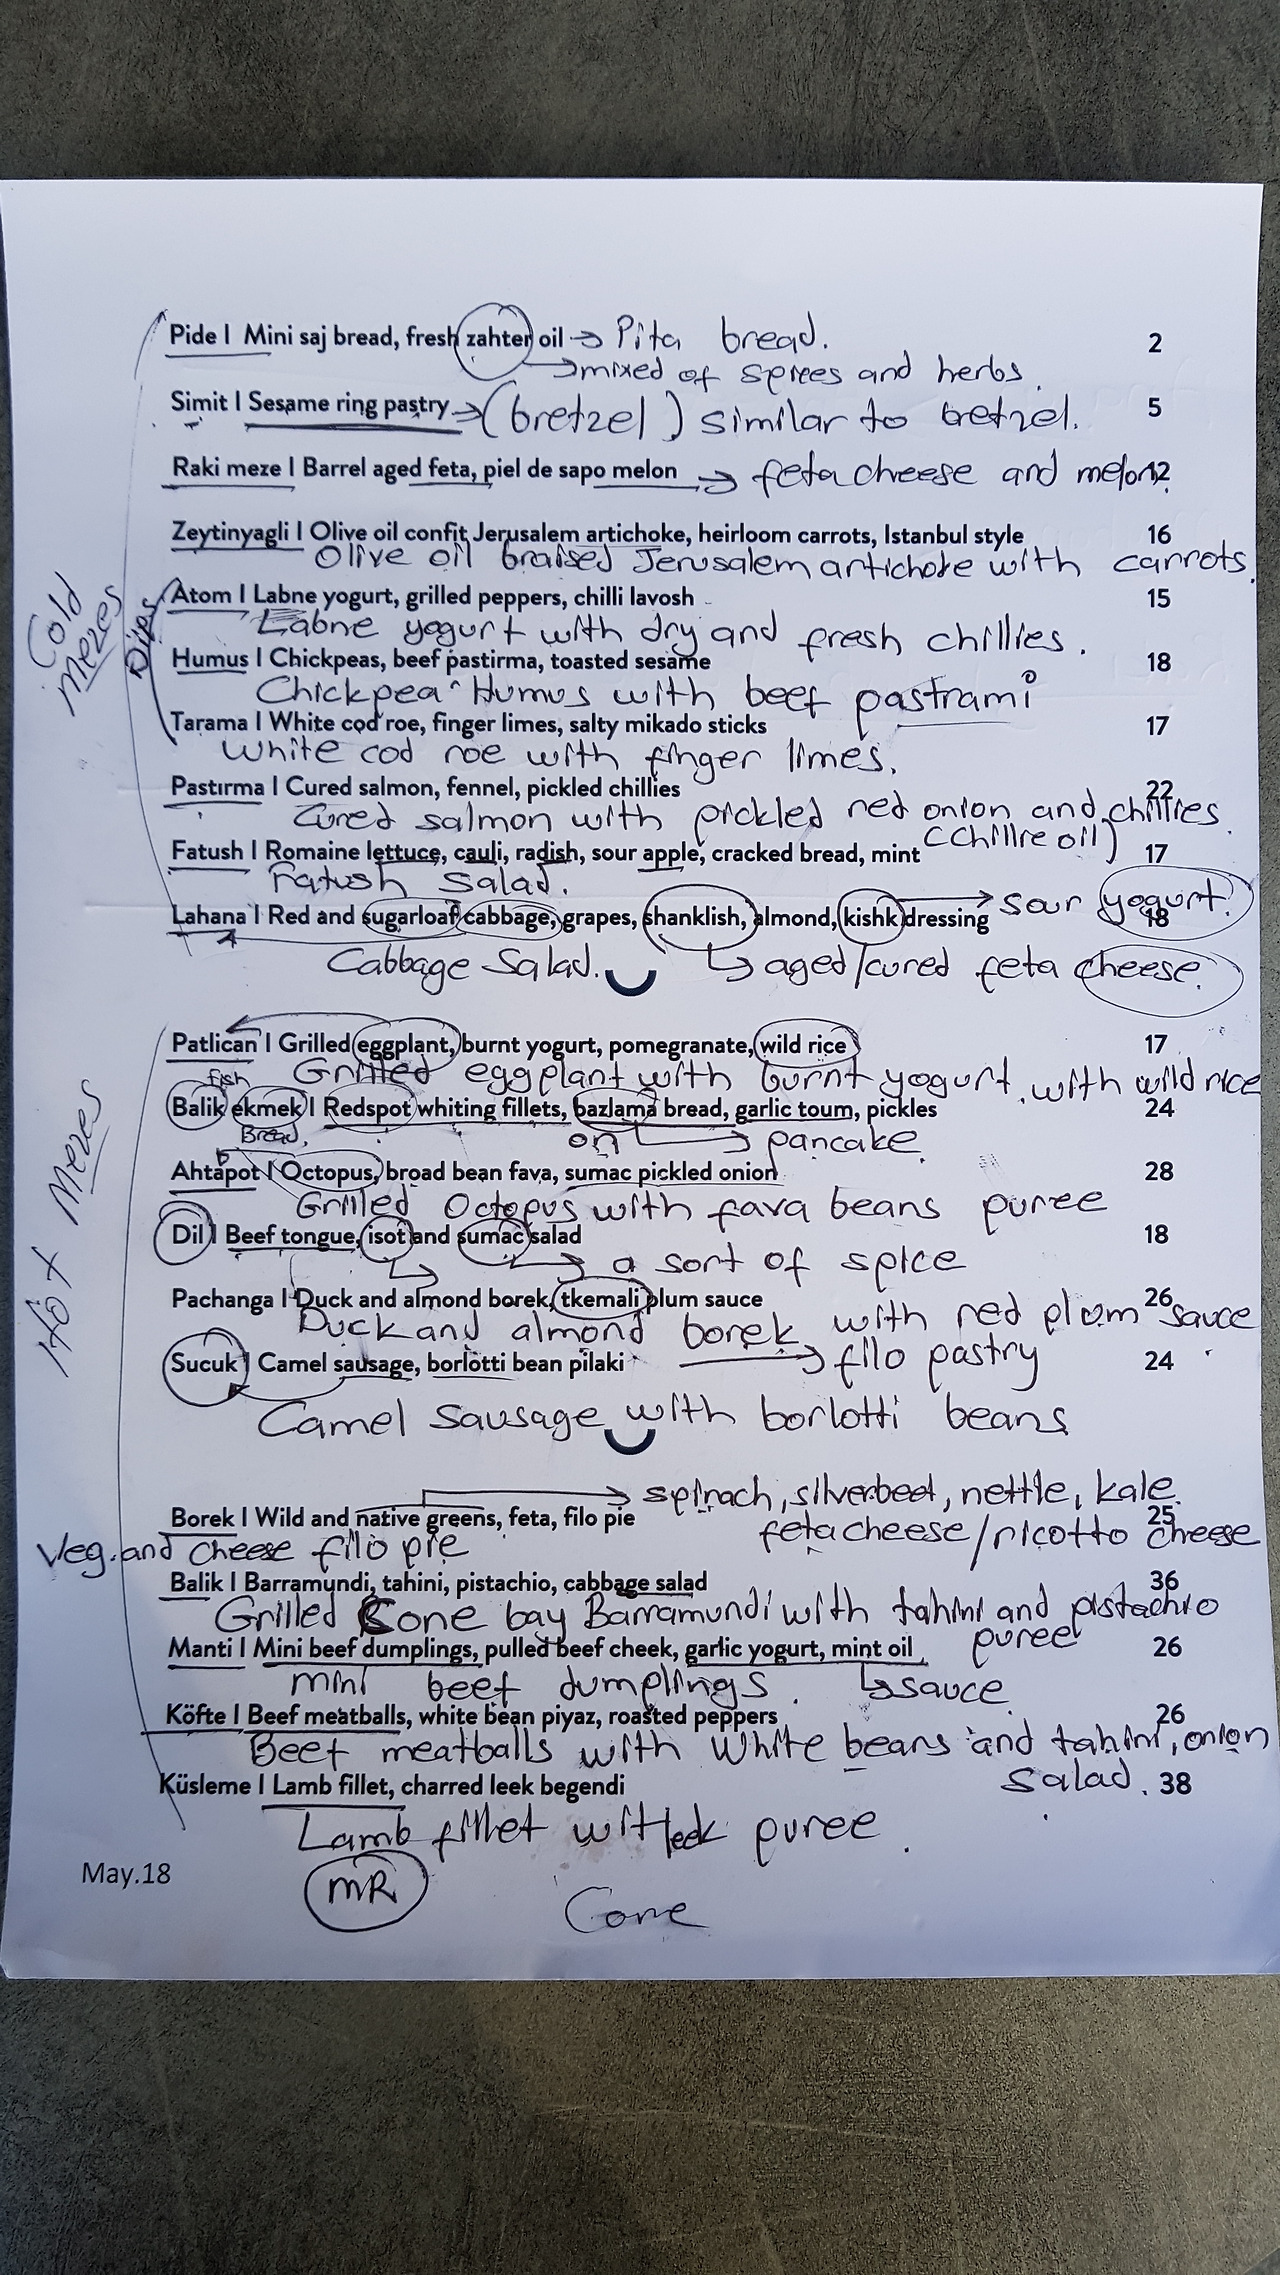 Pide | Mini saj bread, fresh zahter oil → Pita bread. 2
→ mixed of spices and herbs.
Simit | Sesame ring pastry → (bretzel) similar to bretzel. 5
Raki meze | Barrel aged feta, piel de sapo melon → feta cheese and melon. 12
Zeytinyagli | Olive oil confit Jerusalem artichoke, heirloom carrots, Istanbul style 16
Olive oil braised Jerusalem artichoke with carrots.
Cold mezes
Dips
Atom | Labne yogurt, grilled peppers, chilli lavosh 15
Labne yogurt with dry and fresh chillies.
Humus | Chickpeas, beef pastirma, toasted sesame 18
Chickpea Humus with beef pastrami
Tarama | White cod roe, finger limes, salty mikado sticks 17
White cod roe with finger limes.
Pastırma | Cured salmon, fennel, pickled chillies 22
Cured salmon with pickled red onion and chillies.
(chillie oil)
Fatush | Romaine lettuce, cauli, radish, sour apple, cracked bread, mint 17
Fatush salad.
Lahana | Red and sugarloaf cabbage, grapes, shanklish, almond, kishk dressing → sour yogurt. 18
Cabbage Salad. → aged/cured feta cheese.
Hot mezes
Patlican | Grilled eggplant, burnt yogurt, pomegranate, wild rice 17
Grilled eggplant with burnt yogurt. with wild rice
fish
Balik ekmek | Redspot whiting fillets, bazlama bread, garlic toum, pickles 24
Bread. on → pancake.
Ahtapot | Octopus, broad bean fava, sumac pickled onion 28
Grilled Octopus with fava beans puree
Dil | Beef tongue, isot and sumac salad 18
→ a sort of spice
Pachanga | Duck and almond borek, tkemali plum sauce 26
Duck and almond borek with red plum sauce
→ filo pastry
Sucuk | Camel sausage, borlotti bean pilaki 24
Camel sausage with borlotti beans
→ spinach, silverbeet, nettle, kale.
Borek | Wild and native greens, feta, filo pie 25
feta cheese/ricotto cheese
Veg. and cheese filo pie
Balik | Barramundi, tahini, pistachio, cabbage salad 36
Grilled Cone bay Barramundi with tahini and pistachio
puree
Manti | Mini beef dumplings, pulled beef cheek, garlic yogurt, mint oil 26
mini beef dumplings. → sauce
Köfte | Beef meatballs, white bean piyaz, roasted peppers 26
Beef meatballs with white beans and tahini, onion
salad.
Küsleme | Lamb fillet, charred leek begendi 38
Lamb fillet wit leek puree.
May.18
MR
Cone